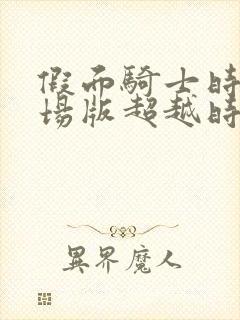 假面騎士時
場版超越時
異界魔人